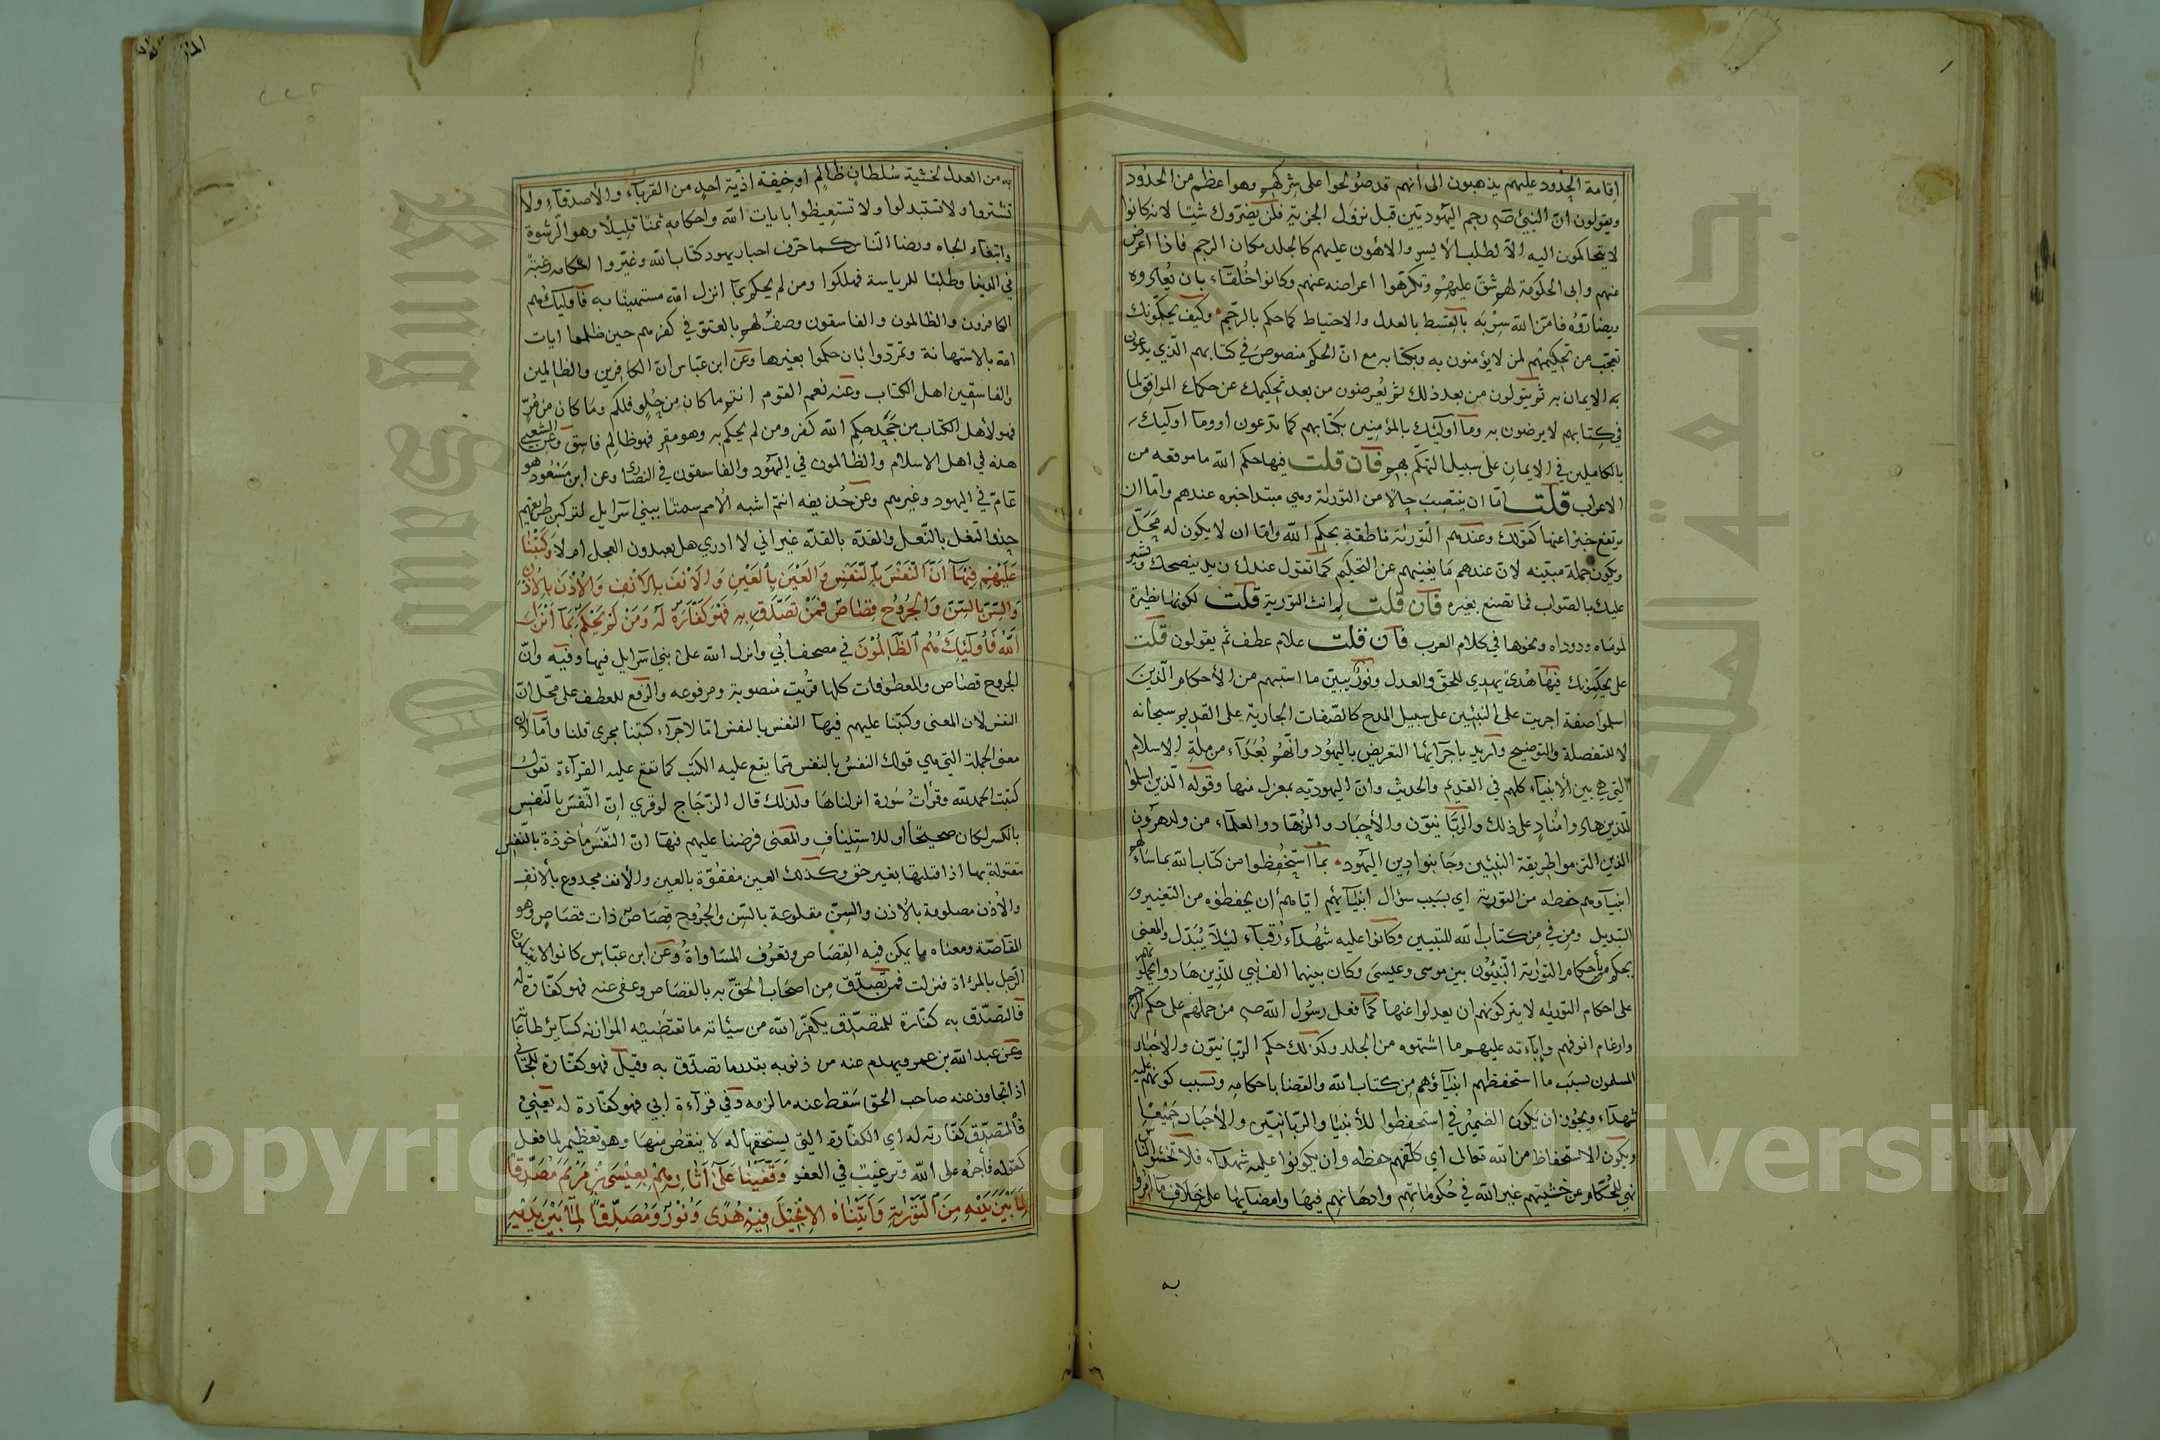 اقامة الحدود عليهم يذهبون الى أنهم قد صولحوا على شركهم وهو اعظم من الحدود
ويقولون انّ النبيّ صم رجم اليهوديّين قبل نزول الجزية فلن يضرّوك شيئا لانه كانوا
لا يتحاكمون اليه الّا لطلب الأيسر والاهون عليهم كالجلد مكان الرجم فاذا اعرض
عنهم وابى الحكومة لهم شقّ عليهم وتكرّهوا اعراضه عنهم وكانوا خلقاء بان يعادوه
ويضارّوه فامّن الله سربه بالقسط بالعدل والاحتياط كما حكم بالرّجم وكيف يحكّمونك
تعجّب من تحكيمهم لمن لا يؤمنون به وبكتابه مع انّ الحكم منصوص في كتابهم الّذي يدعون
به الايمان به ثم يتولون من بعد ذلك ثم يعرضون من بعد تحكيمك عن حكمك الموافق لما
في كتابهم لا يرضون به وما اوليك بالمؤمنين بكتابهم كما يدّعون او وما اوليك
بالكاملين في الايمان على سبيل التهكّم بهم فان قلت فيها حكم الله ما موقعه من
الاعراب قلت امّا ان ينتصب حالا من التورٰية وهي مبتدا خبره عندهم وامّا ان
يرتفع خبرا عنها كقولك وعندهم التورٰية ناطقة بحكم الله وامّا ان لا يكون له محلّ
ويكون جملة مبيّنه لانّ عندهم ما يغنيهم عن التحكيم كما تقول عندك زيد ينصحك ويشير
عليك بالصّواب فما تصنع بغيره فان قلت لم انث التورية قلت لكونها نظيرة
لموماه ودوداه ونحوها في كلام العرب فان قلت علام عطف ثم يقولون قلت
على يحكّمونك فيها هدًى يهدي للحق والعدل ونور يبيّن ما استبهم من الأحكام الّذين
اسلموا صفة اجريت على النبيّين على سبيل المدح كالصّفات الجارية على القديم سبحانه
لا للتفصلة والتوضيح واريد باجرائها التعريض باليهود وانّهم بُعَدَآء من ملّة الاسلام
الّتي هي دين الأنبياء كلهم في القديم والحديث وانّ اليهودية بمعزل منها وقوله الّذين اسلموا
للّذين هادوا منادٍ على ذلك والربّانيّون والأحبار والزهّاد والعلماء من ولد هرون
الّذين التزموا طريقة النبيّين وجانبوا دين اليهود بما استُحفظوا من كتاب الله بما ساءلهم
انبياؤهم حفظه من التورية اي بسبب سؤال انبيآئهم ايّاهم أن يحفظوه من التغيير و
التبديل ومن في من كتاب الله للتبيين وكانوا عليه شهدآء رُقباء لئلّا يُبدّل والمعنى
يحكم بأحكام التورٰية النبيّون بين موسى وعيسى وكان بينهما الف نبي للّذين هادوا يحملونهم
على احكام التورٰيه لا يتركونهم ان يعدلوا عنها كما فعل رسول الله صم من حملهم على حكم الرجم
وارغام انوفهم وإباءته عليهم ما اشتهوه من الجلد وكذلك حكم الربّانيّون والاحبار
المسلمون بسبب ما استحفظهم انبياؤهم من كتاب الله والقضا باحكامه وبسبب كونهم عليه
شهداء ويجوز ان يكون الضمير في استحفظوا للأنبيا والربّانيّين والأحبار جميعا
ويكون الاستحفاظ من الله تعالى اي كلّفهم حفظه وان يكونوا عليه شهداء فلا تخشوا الناس
نهي للحُكّام عن خشيتهم غير الله في حكوماتهم وادهانهم فيها وامضايها على خلاف ما امروا
به
به من العدل لخشية سُلطان ظالم او خيفة اذيّة احدٍ من القرباء والاصدقآء ولا
تشتروا ولا تستبدلوا ولا تستعيضوا بايات الله واحكامه ثمنا قليلًا وهو الرشوة
وابتغاء الجاه ورضا النّاس كما حرّف احبار يهود كتاب الله وغيّروا احكامه رغبة
في الدنيا وطلبًا للرياسة فهلكوا ومن لم يحكم بما انزل الله مستهينًا به فاوليك هم
الكافرون والظالمون والفاسقون وصفٌ لهم بالعتوّ في كفرهم حين ظلموا ايات
الله بالاستهانة وتمرّدوا بان حكموا بغيرها وعن ابن عبّاس انّ الكافرين والظالمين
والفاسقين اهل الكتاب وعنه نعم القوم انتم ما كان من حُلوٍ فلكم وما كان من مُرّ
فهو لأهل الكتاب من جحد حكم الله كفر ومن لم يحكم به وهو مقر فهو ظالم فاسق وعن الشعبي
هذه في اهل الاسلام والظالمون في اليهود والفاسقون في النصارى وعن ابن مَسْعُود هو
عَامّ في اليهود وغيرهم وعن حُذيفه انتم اشبه الأمم سمتًا ببني اسرايل لتركبن طريقهم
حذو النّعل بالنّعل والقذّة بالقذّة غير اني لا ادري هل يعبدون العجل ام لا وَكَتَبْنَا
عَلَيْهِمْ فِيهَآ اَنَّ النَّفْسَ بِالنَّفْسِ وَالعَيْنَ بِالْعَيْنِ وَالْاَنْفَ بِالْاَنْفِ وَالْاُذُنَ بِالْاُذُنِ
وَالسِّنَّ بِالسِّنِّ وَالْجُرُوحَ قِصَاصٌ فَمَنْ تَصَدَّقَ بِهِ فَهُوَ كَفَّارَةٌ لَهُ وَمَنْ لَمْ يَحْكُمْ بِمَآ اَنْزَلَ
اللّٰهُ فَاُولٰئِكَ هُمُ الظَّالِمُونَ في مصحف أُبي وانزل الله على بني اسرايل فيها وفيه وانّ
الجروح قصاص والمعطوفات كلها قريت منصوبة ومرفوعه والرّفع للعطف على محلّ انّ
النفس لان المعنى وكتبنا عليهم فيها النفس بالنفس امّا لاجرآء كتبنا مجرى قلنا وامّا لأن
معنى الجملة التي هي قولك النفسُ بالنفس ممّا يقع عليه الكتب كما تقع عليه القرآءة تقول
كتبت الحمد لله وقرأت سُورة انزلناها ولذلك قال الزّجّاج لو قري انّ النّفس بالنّفس
بالكسر لكان صحيحًا او للاستيناف والمعنى فرضنا عليهم فيها انّ النّفس ماخوذة بالنّفس
مقتولة بها اذا قتلتها بغير حق وكذلك العين مفقوّة بالعين والأنف مجدوع بالأنف
والاُذن مصلومة بالاُذن والسنّ مقلوعة بالسّن والجروح قصاصٌ ذات قصاصٍ وهو
المقاصّة ومعناه ما يمكن فيه القصاص وتعرف المساواة وعن ابن عبّاس كانوا لا يقتلون
الرّجل بالمراة فنزلت فمن تصدّق من اصحاب الحقّ به بالقصاص وعفى عنه فهو كفّارة له
فالتصدّق به كفّارة للمتصدّق يكفّر الله من سيئاته ما تقتضيه الموازنه كساير طاعاته
وعن عبد الله بن عمرو يهدم عنه من ذنوبه بقدر ما تصدّق به وقيل فهو كفّارة للجاني
اذا تجاوز عنه صاحب الحق سقط عنه ما لزمه وفي قرآءة أبي فهو كفّارة له يعني
فالمتصدّق كفّارته له اي الكفّارة التي يستحقها له لا ينقص منها وهو تعظيم لما فعل
كقوله فأجره على الله وترغيب في العفو وَقَفَّيْنَا عَلَىٰ آثَارِهِمْ بِعِيسَى بْنِ مَرْيَمَ مُصَدِّقًا
لِمَا بَيْنَ يَدَيْهِ مِنَ التَّوْرٰيةِ وَآتَيْنَاهُ الْاِنْجِيلَ فِيهِ هُدًى وَنُورٌ وَمُصَدِّقًا لِمَا بَيْنَ يَدَيْهِ
Copyright © King Saud University